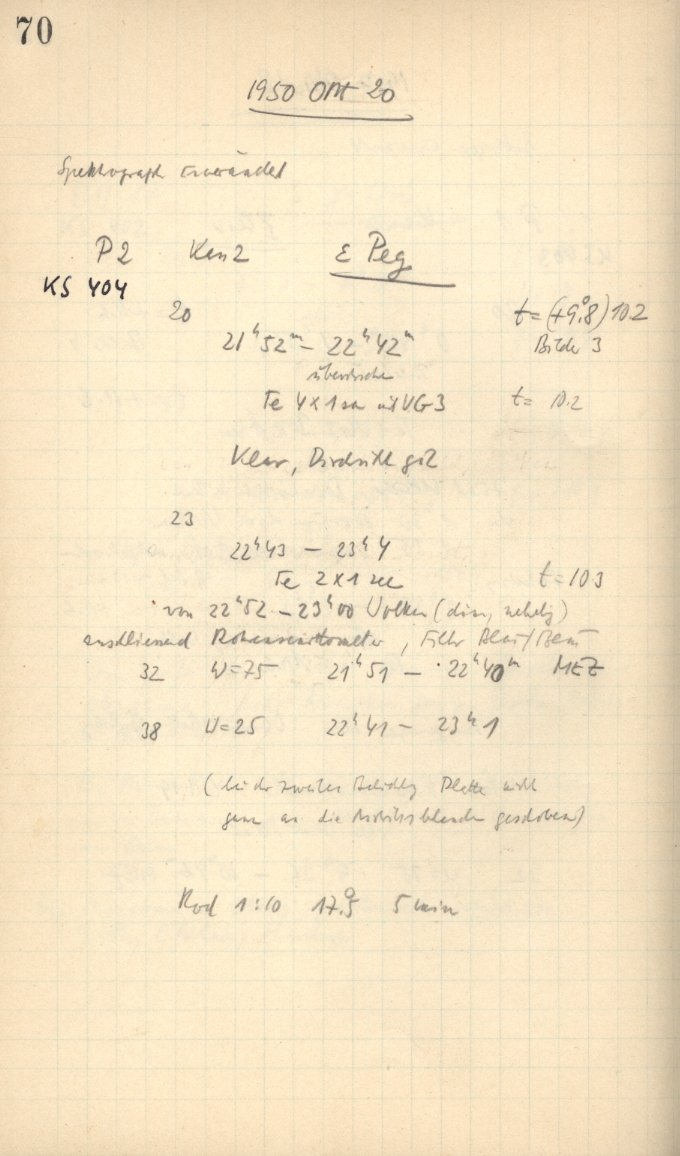 70
1950 Okt 20
Spektrograph unverändert
P2 Kam2 ε Peg
KS 404
20 t=(+9°.8) 10.2
21ʰ52ᵐ – 22ʰ42ᵐ Bilder 3
Fe 4×1 sec mit UG3 t= 10.2
Klar, Durchsicht gut
23
22ʰ43 – 23ʰ4
Fe 2×1 sec t=10.3
von 22ʰ52 – 23ʰ00 Wolken (dünn, neblig)
anschliessend Röhrensensitometer, Filter Blau/
32 W=75 21ʰ51 – 22ʰ40ᵐ MEZ
38 W=25 22ʰ41 – 23ʰ1
(bei der zweiten Belichtg Platte nicht
ganz an die geschoben)
Rod 1:10 17°.5 5 min